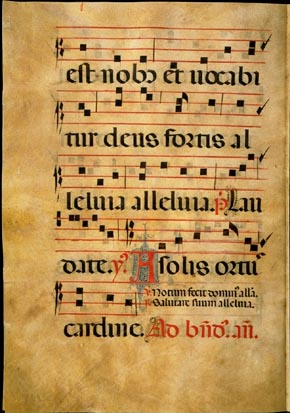 est nob̄ et uocabi
tur deus fortis al
leluia alleluia. p̄s Lau
date. ℣ A solis ortu
℣. Notum fecit domin⁹ alla.
℟. Salutare suum alleluia.
cardine. Ad bn̄d. an̄.